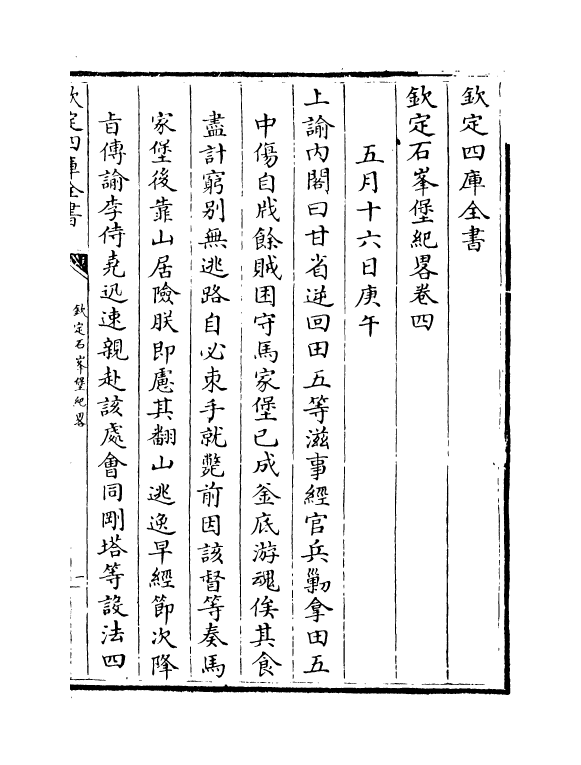 欽定四庫全書
欽定石峯堡紀畧卷四
五月十六日庚午
上諭内閣曰甘省逆回田五等滋事經官兵勦拿田五
中傷自戕餘賊困守馬家堡已成釡底游魂俟其食
盡計窮别無逃路自必束手就斃前因該督等奏馬
家堡後靠山居險朕即慮其翻山逃逸早經節次降
㫖傳諭李侍堯迅速親赴該處㑹同剛塔等設法四
欽定四庫全書
欽定石峯堡紀畧
一